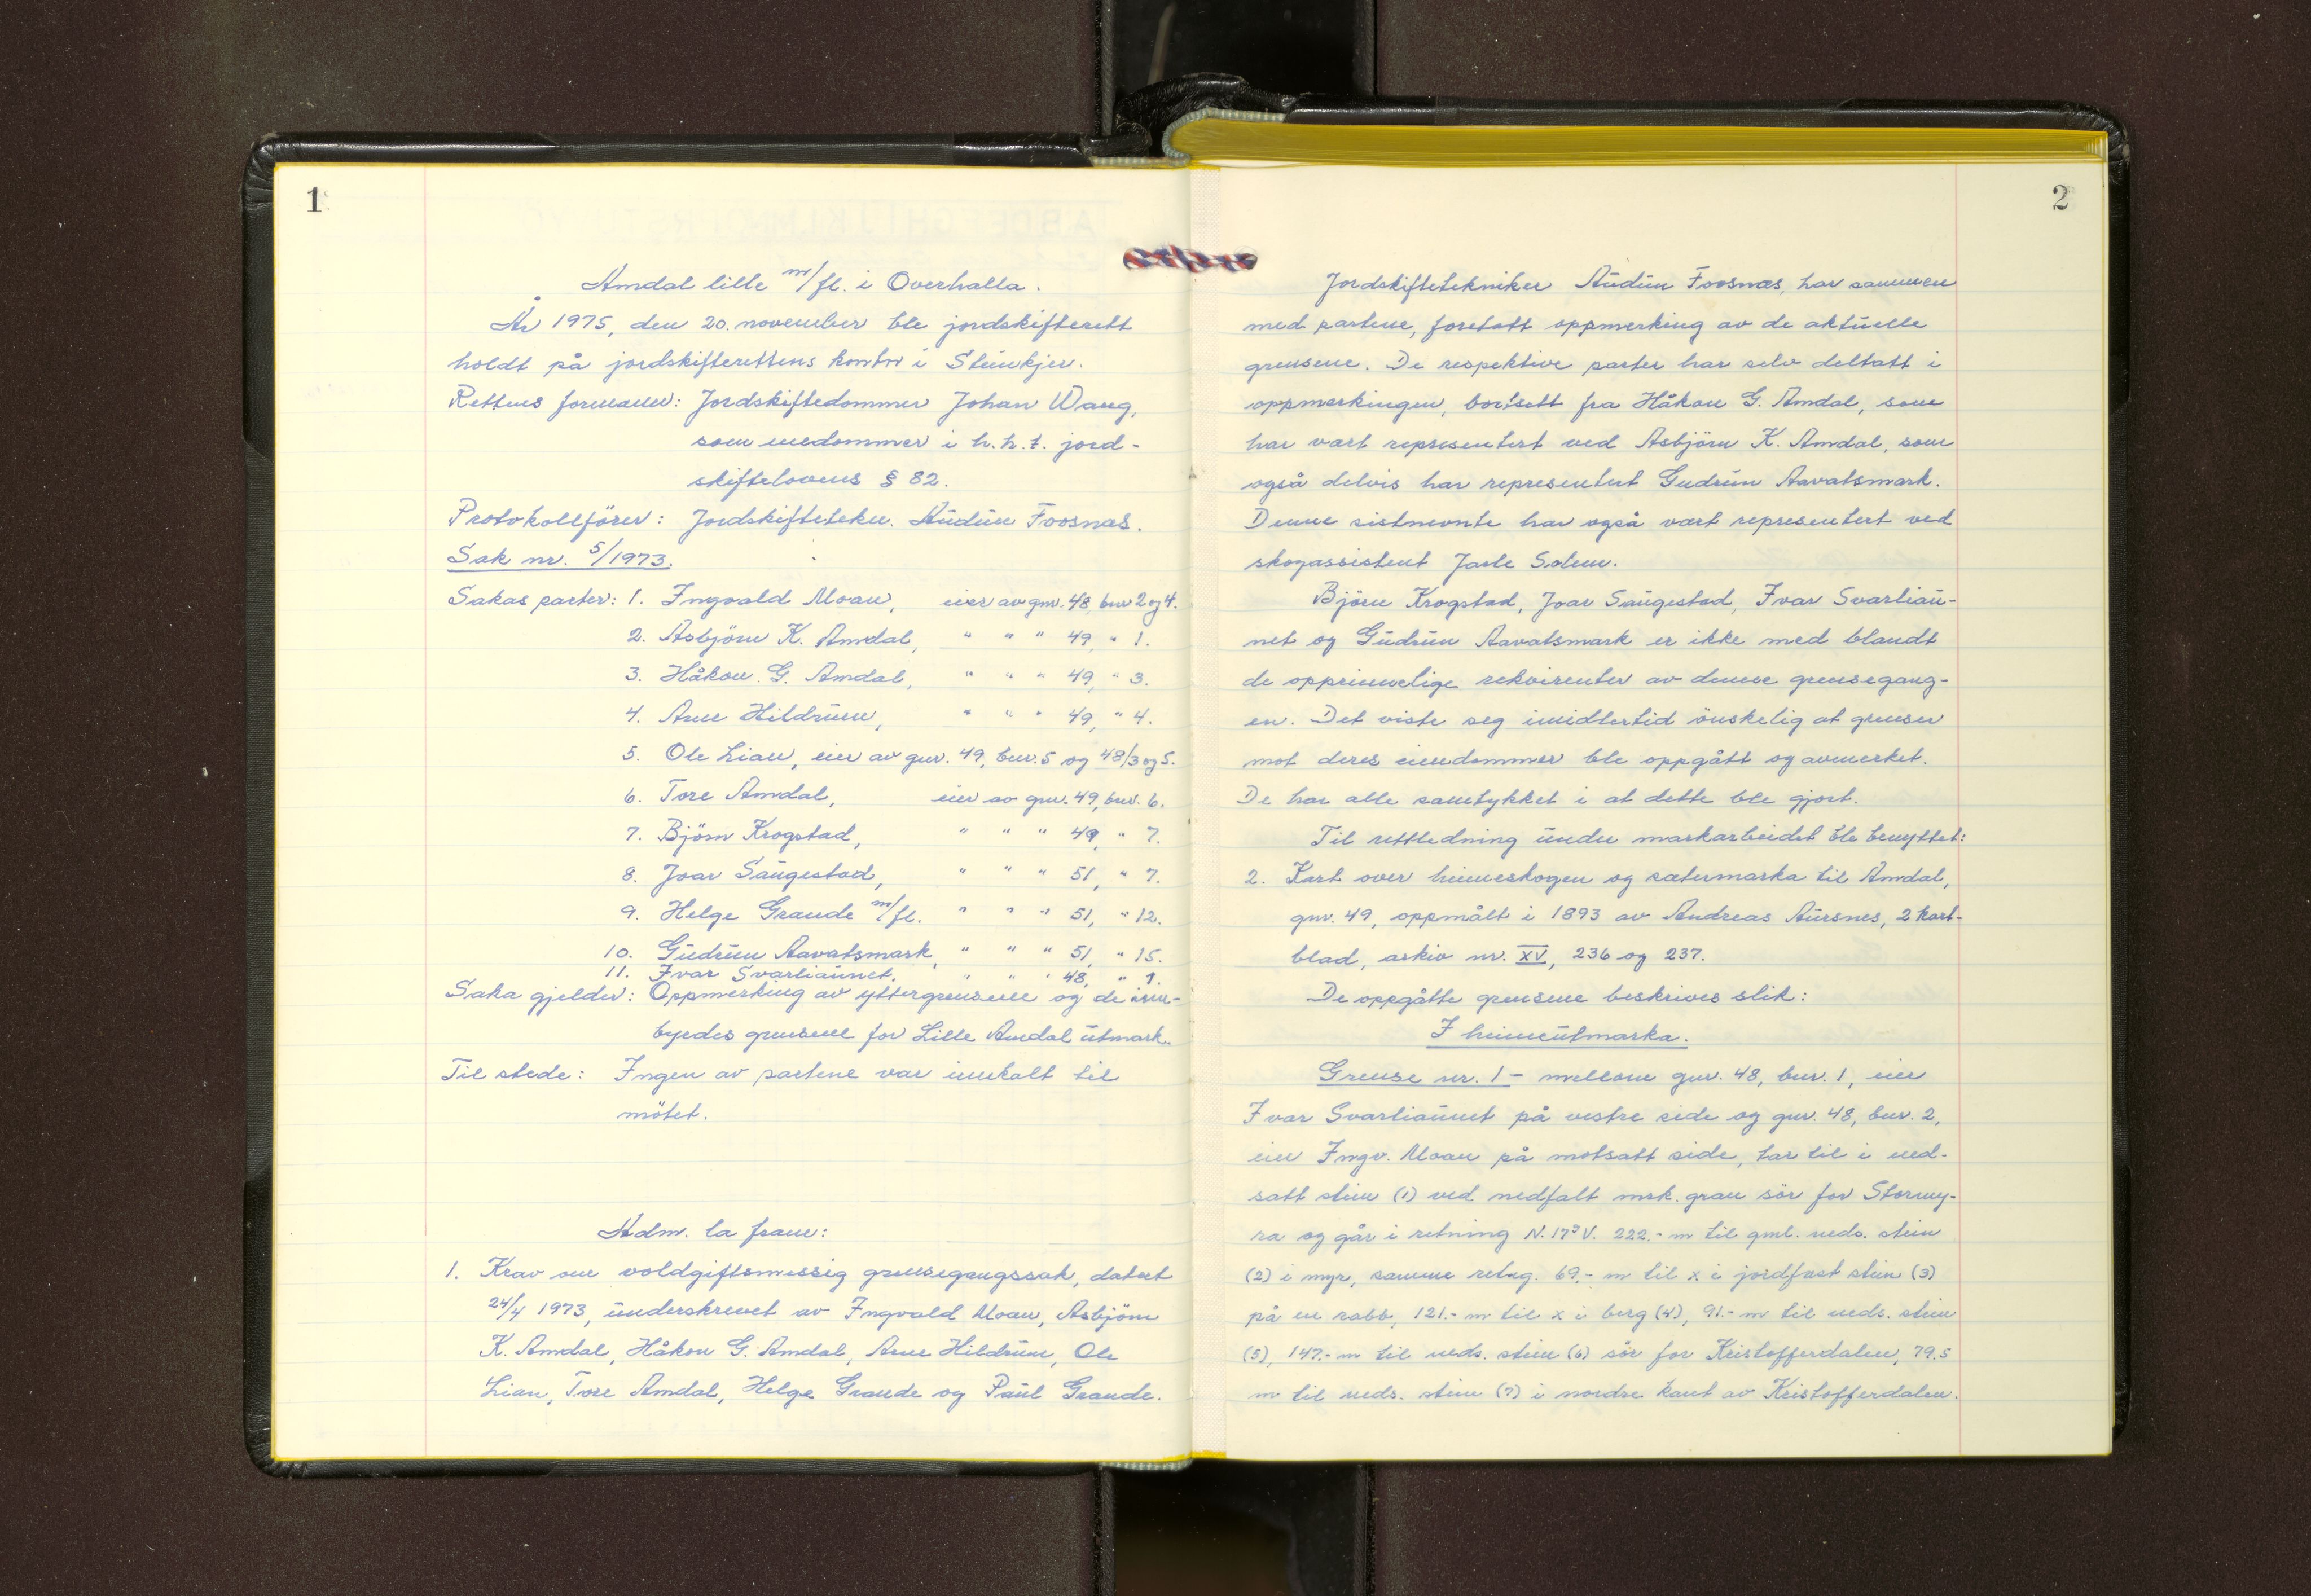 1
Amdal lille m/fl. i Overhalla.
År 1975, den 20. november ble jordskifterett
holdt på jordskifterettens kontor i Steinkjer.
Rettens formann: Jordskiftedommer Johan Wang,
som enedommer i h.h.t. jord-
skiftelovens § 82.
Protokollförer: Jordskiftetekn. Audun Foosnæs.
Sak nr. 5/1973.
Sakas parter: 1. Ingvald Moan, eier av gnr. 48, bnr 2 og 4.
2. Asbjörn K. Amdal, " " " 49, " 1.
3. Håkon G. Amdal, " " " 49, " 3.
4. Arne Hildrum, " " " 49, " 4.
5. Ole Lian, eier av gnr. 49, bnr. 5 og 48/3 og 5.
6. Tore Amdal, eier av gnr. 49, bnr. 6.
7. Björn Krogstad, " " " 49, " 7.
8. Joar Saugestad, " " " 51, " 7.
9. Helge Grande m/fl. " " " 51, " 12.
10. Gudrun Aavatsmark, " " " 51, " 15.
11. Ivar Svarliaunet, " " " 48, " 1.
Saka gjelder: Oppmerking av yttergrensene og de inn-
byrdes grensene for Lille Amdal utmark.
Til stede: Ingen av partene var innkalt til
mötet.
Adm. la fram:
1. Krav om voldgiftsmessig grensegangssak, datert
24/4 1973, underskrevet av Ingvald Moan, Asbjörn
K. Amdal, Håkon G. Amdal, Arne Hildrum, Ole
Lian, Tore Amdal, Helge Grande og Paul Grande.
2
Jordskiftetekniker Audun Foosnæs, har sammen
med partene, foretatt oppmerking av de aktuelle
grensene. De respektive parter har selv deltatt i
oppmerkingen, bortsett fra Håkon G. Amdal, som
har vært representert ved Asbjörn K. Amdal, som
også delvis har representert Gudrun Aavatsmark.
Denne sistnevnte har også vært representert ved
skogassistent Jarle Solem.
Björn Krogstad, Joar Saugestad, Ivar Svarliau-
net og Gudrun Aavatsmark er ikke med blandt
de opprinnelige rekvirenter av denne grensegang-
en. Det viste seg imidlertid önskelig at grensen
mot deres eiendommer ble oppgått og avmerket.
De har alle samtykket i at dette ble gjort.
Til rettledning under markarbeidet ble benyttet:
2. Kart over heimeskogen og sætermarka til Amdal,
gnr. 49, oppmålt i 1893 av Andreas Aursnes, 2 kart-
blad, arkiv nr. XV, 236 og 237.
De oppgåtte grensene beskrives slik:
I heimeutmarka.
Grense nr. 1 - mellom gnr. 48, bnr. 1, eier
Ivar Svarliaunet på vestre side og gnr. 48, bnr. 2,
eier Ingv. Moan på motsatt side, tar til i ned-
satt stein (1) ved nedfalt mrk. gran sör for Stormy-
ra og går i retning N. 17g V. 222.- m til gml. neds. stein
(2) i myr, samme retng. 69.- m til x i jordfast stein (3)
på en rabb, 121.- m til x i berg (4), 91.- m til neds. stein
(5), 147.- m til neds. stein (6) sör for Kristofferdalen, 79.5
m til neds. stein (7) i nordre kant av Kristofferdalen.